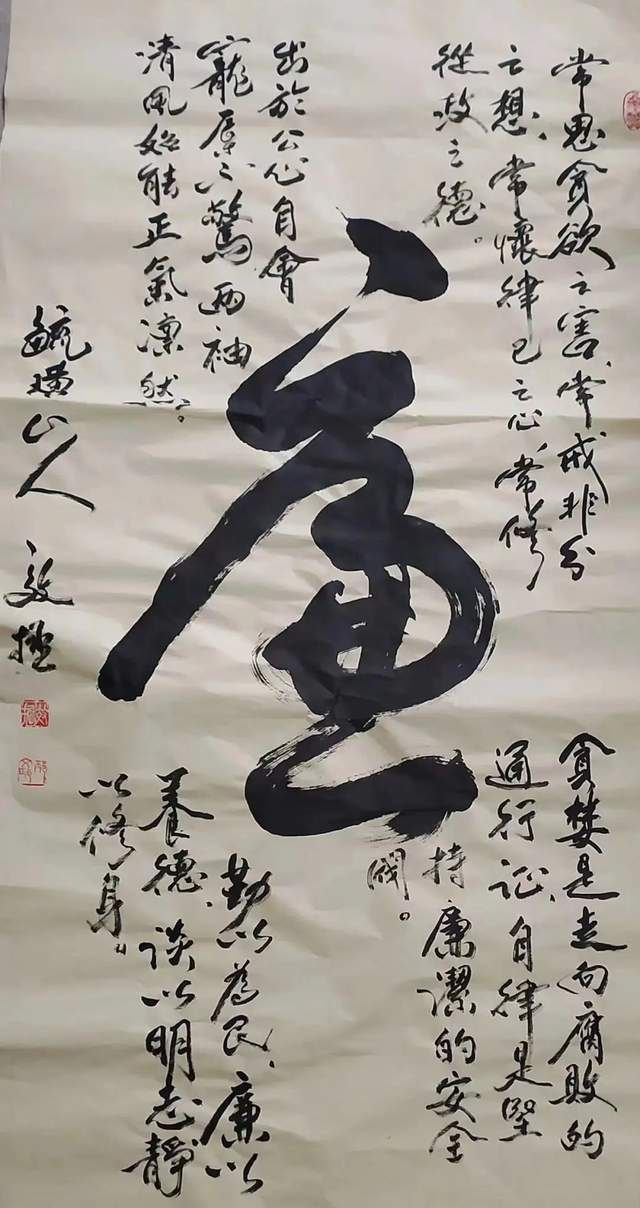 常思貪欲之害,常戒非分
之想,常懷律己之心,常修
從政之德。
出於公心自會
寵辱不驚兩袖
清風始能正氣凜然。
廉
貪婪是走向腐敗的
通行证,自律是堅
持廉潔的安全
阀。
勤以為民,廉以
養德,淡以明志靜
以修身。
毓璜山人